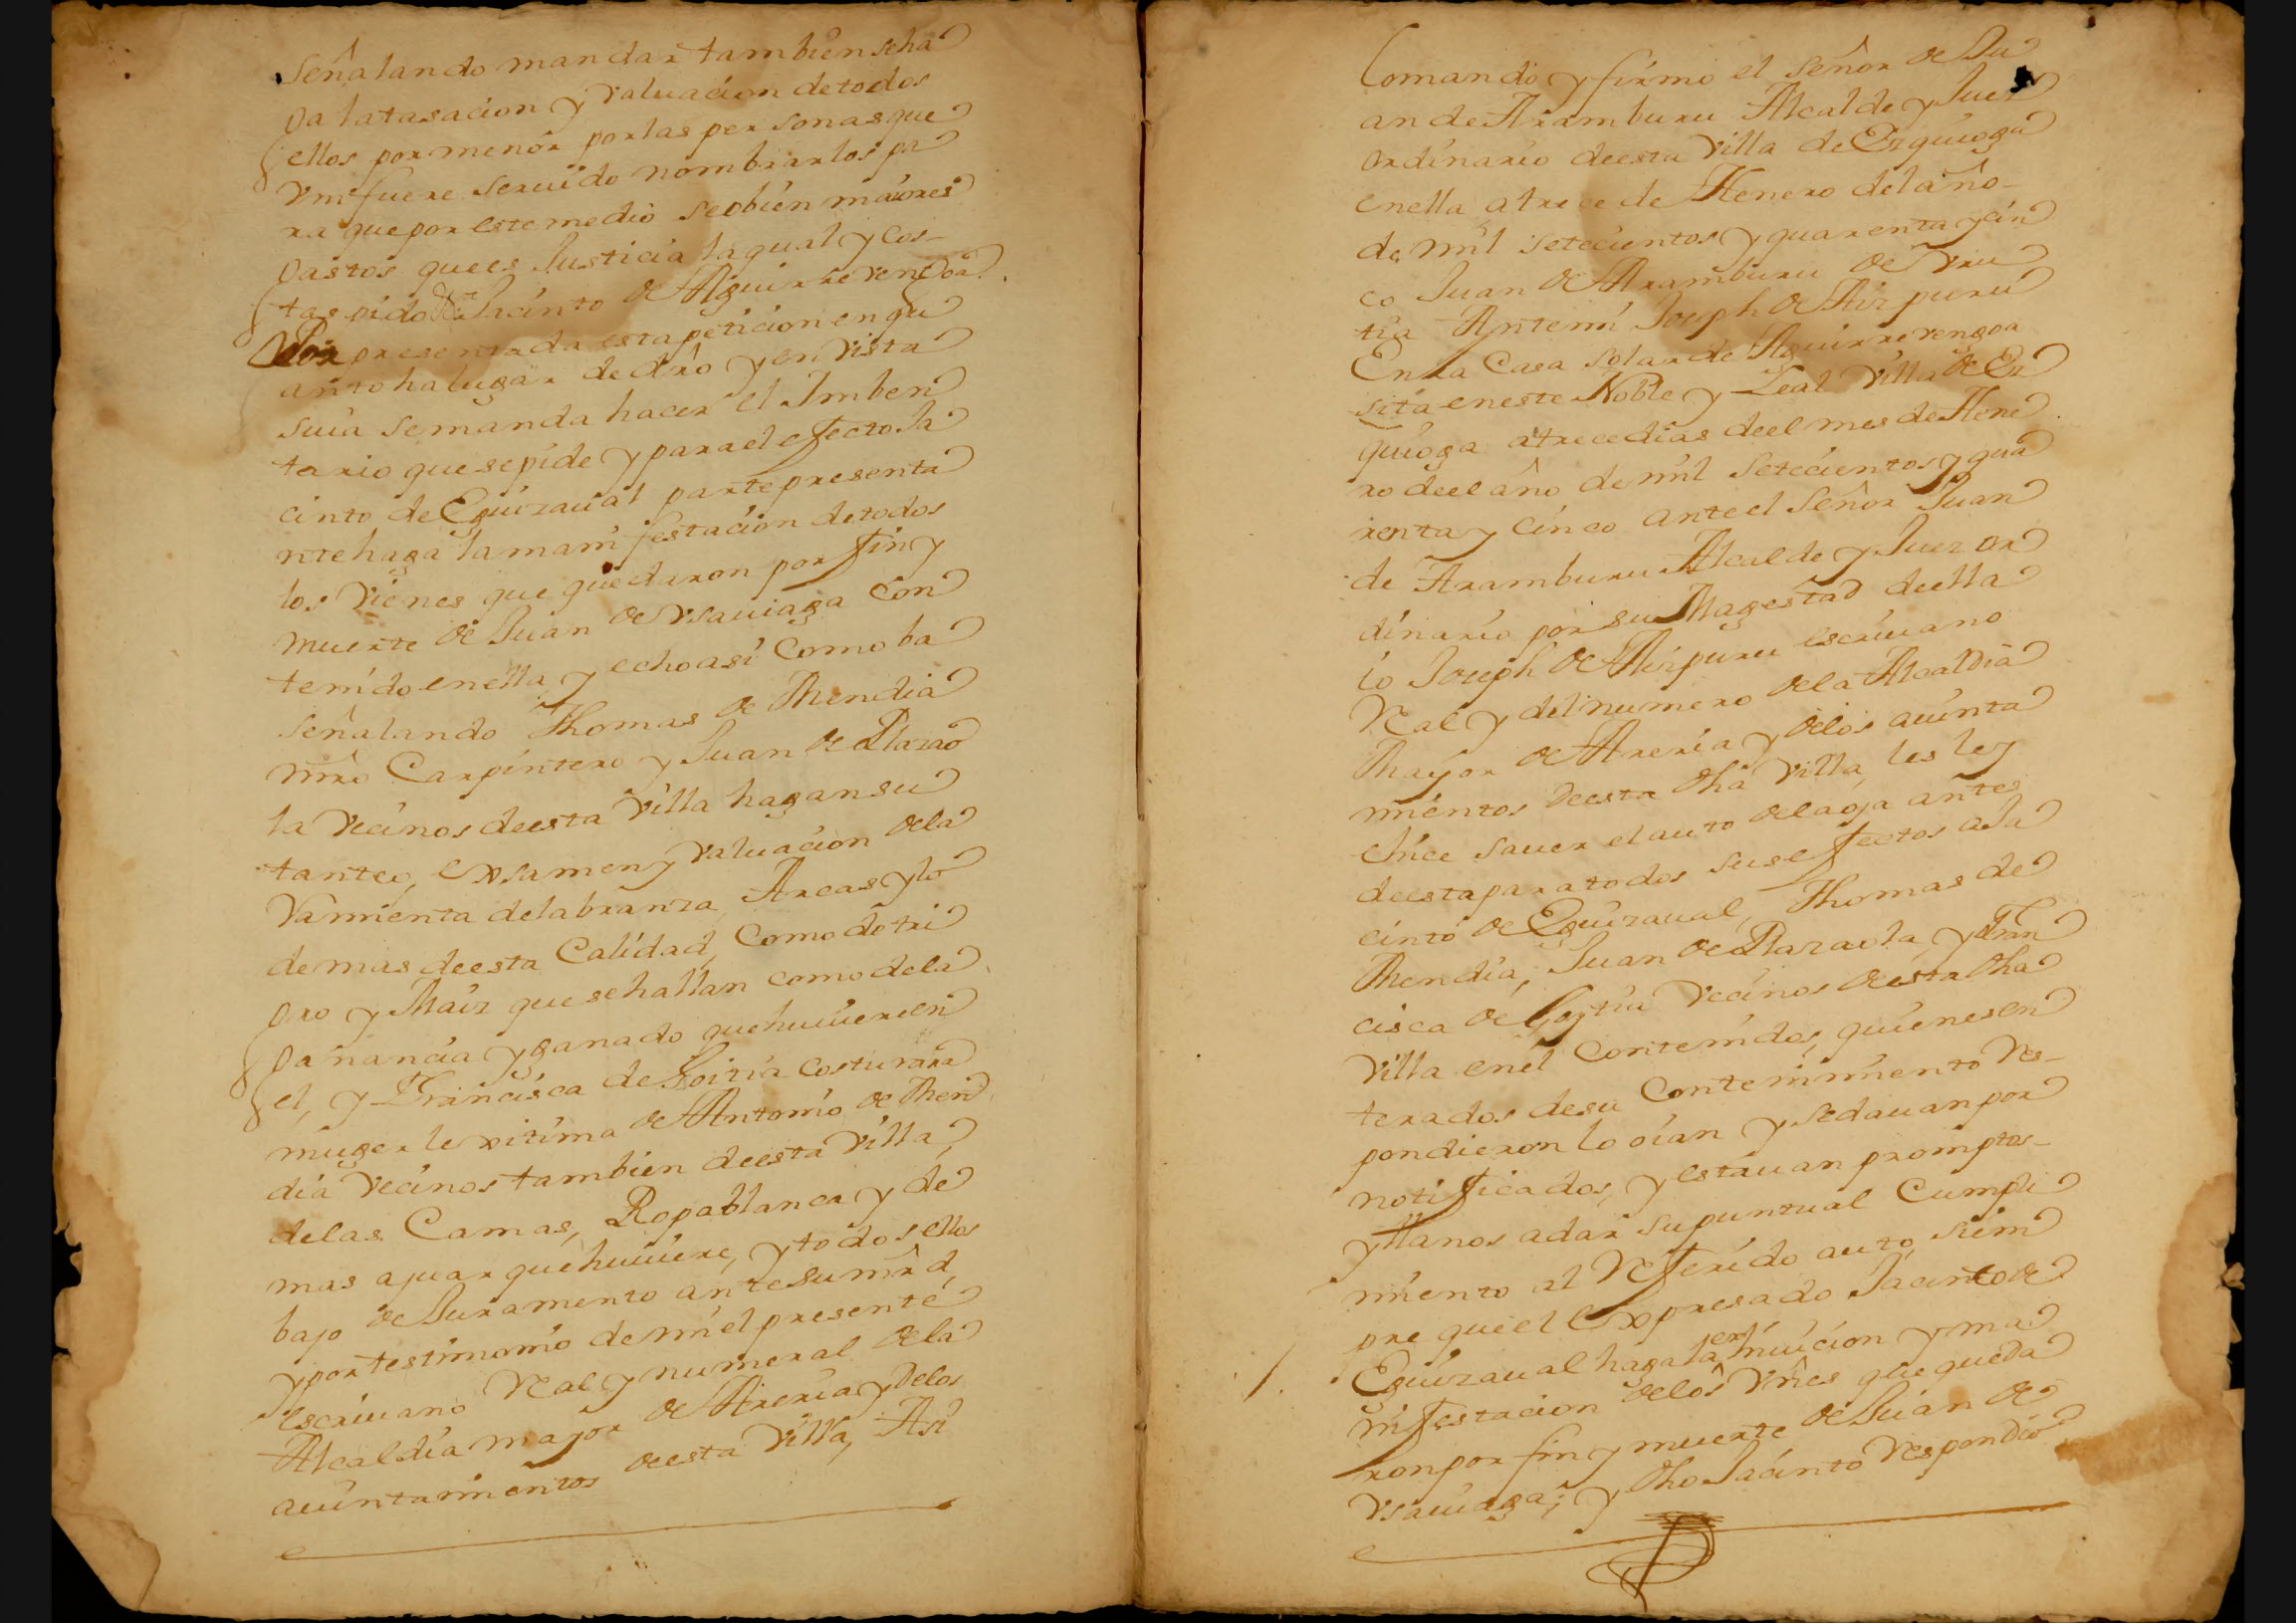 señalando mandar tambien se ha
ga la tasacion y valuacion de todos
ellos por menor por las personas que
Vm fuere seruido nombrarlos pa
ra que por este medio se obien maiores
gastos que es Justicia la qual y cos-
tas pido Jacinto de Aguirrevengoa
Por presentada esta peticion en qu
anto ha lugar de dro y en vista
suia se manda hacer el Imben
tario que se pide y para el efecto Ja
cinto de Eguizaual parte presenta
nte haga la manifestacion de todos
los vienes que quedaron por fin y
muerte de Juan de Vsauiaga con
tenido en ella y echo asi como ba
señalando Thomas de Mendia
mro Carpintero y Juan de Plazao
la vecinos de esta Villa hagan su
tanteo, exsamen y valuacion de la
Vamienta de labranza Arcas y lo
demas de esta Calidad, como de tri
go y Maiz que se hallan como de la
ganancia y ganado que huuiere en
el, y Francisca de Goitia costurera
muger lexitima de Antonio de Men
dia vecinos tambien de esta Villa,
de las Camas, Ropa blanca y de
mas ajuar que huuiere, y todos ellos
bajo de Juramento ante su mrd,
y por testimonio de mi el presente
escriuano Real y numeral de la
Alcaldia mayor de Areria y de los
aiuntamientos de esta Villa, Asi
lo mando y firmo el señor de Ju
an de Aramburu Alcalde y Juez
ordinario de esta Villa de Ezquioga
en ella a trece de Henero del año-
de mil setecientos y quarenta y cin
co Juan de Aramburu de Vru
tia Antemi Joseph de Aizpuru
En la Casa solar de Aguirrevengoa
sita en este Noble y Leal Villa de Ez
quioga a trece dias de el mes de Hene
ro de el año de mil setecientos y qua
renta y cinco ante el Señor Juan
de Aramburu Alcalde y Juez or
dinario por su Magestad de ella
io Joseph de Aizpuru escriuano
Real y del numero de la Alcaldia
Mayor de Areria y de los aiunta
mientos de esta dha Villa, les ley
e hice sauer el auto de la oja antes
de esta para todos sus efectos a Ja
cinto de Eguizaual, Thomas de
Mendia, Juan de Plazaola, y Fran
cisca de Goytia vecinos de esta dha
Villa en el contenidos, quienes en
terados de su contenimiento Res-
pondieron lo oian y se dauan por
notificados, y estauan promptos-
y llanos a dar su puntual Cumpli
miento al Referido auto, siem
pre que el expresado Jacinto de
Eguizaual haga la exhiuicion y ma
nifestacion de los vnes que queda
ron por fin y muerte de Juan de
Vsauiaga; y dho Jacinto Respondio